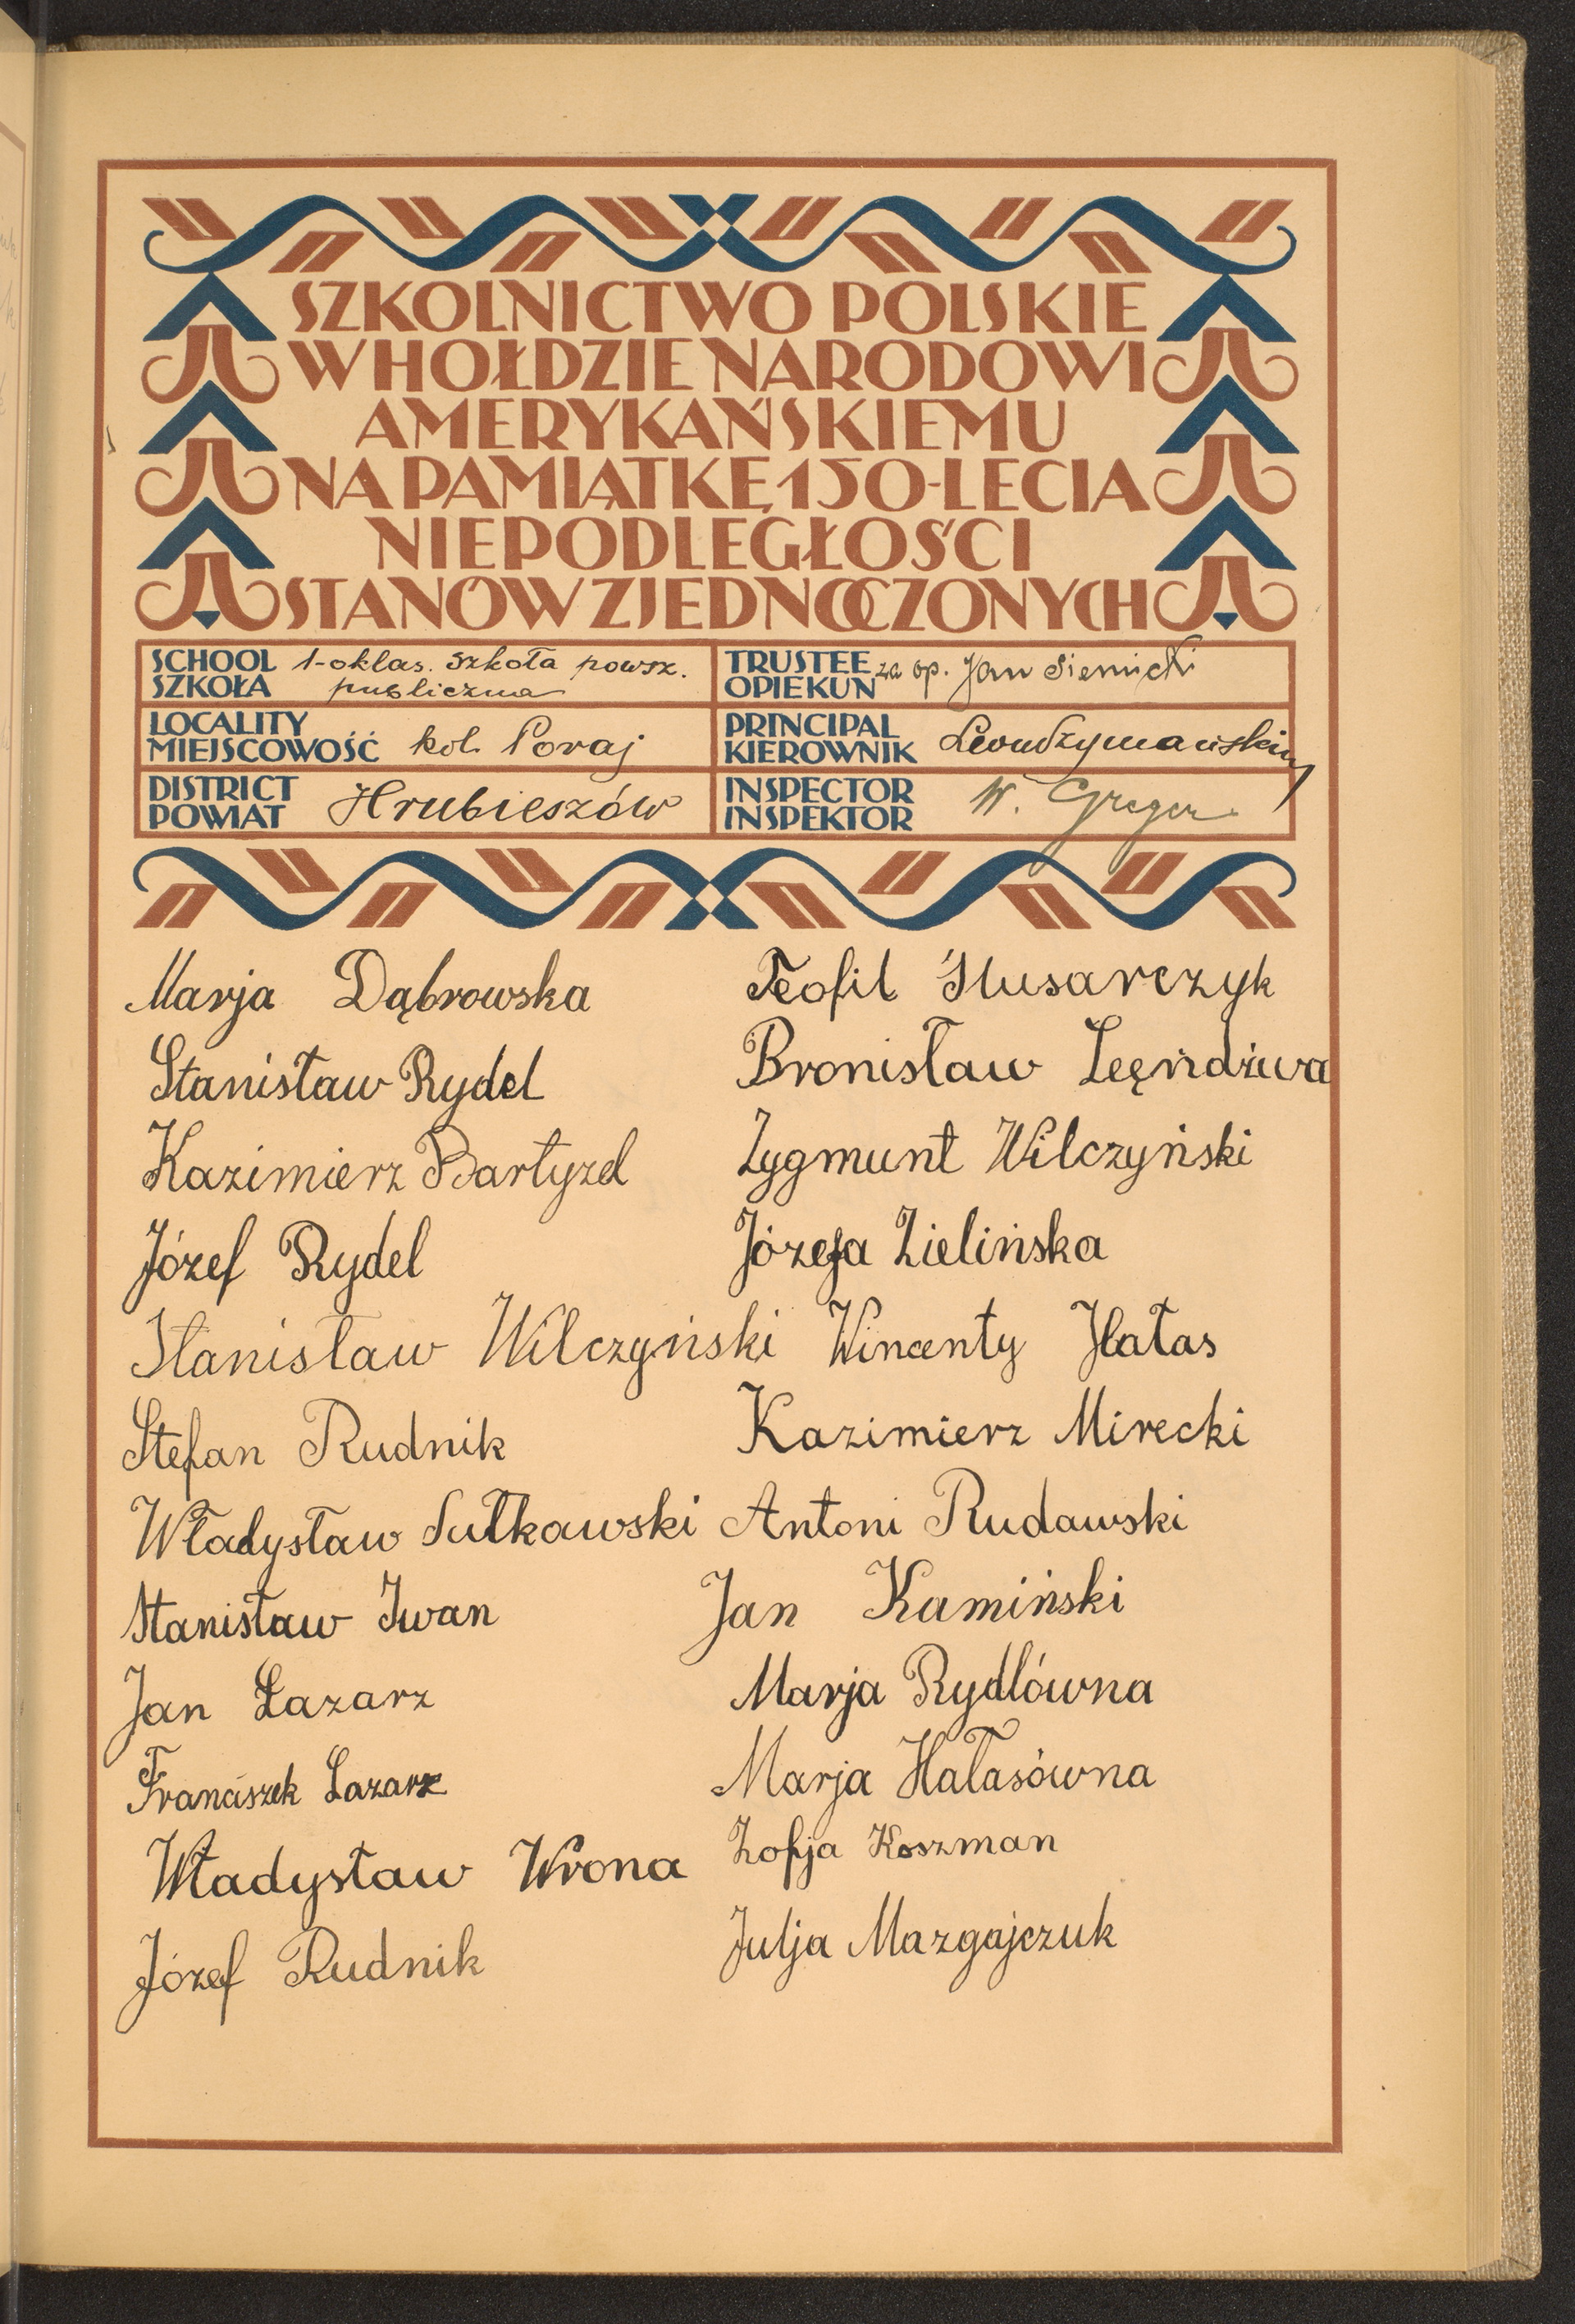 SZKOLNICTWO POLSKIE
W HOŁDZIE NARODOWI
AMERYKAŃSKIEMU
NA PAMIĄTKĘ 150-LECIA
NIEPODLEGŁOŚCI
STANÓW ZJEDNOCZONYCH
SCHOOL
SZKOŁA
1-oklas. szkoła powsz.
publiczna
TRUSTEE
OPIEKUN
za op. Jan Siemicki
LOCALITY
MIEJSCOWOŚĆ
kol. Poraj
PRINCIPAL
KIEROWNIK
Leon Szymański
DISTRICT
POWIAT
Hrubieszów
INSPECTOR
INSPEKTOR
W. Greger
Marja Dąbrowska
Stanisław Rydel
Kazimierz Bartyzel
Józef Rydel
Stanisław Wilczyński
Stefan Rudnik
Władysław Sułkawski
Stanisław Iwan
Jan Łazarz
Franciszek Łazarz
Władysław Wrona
Józef Rudnik
Teofil Ślusarczyk
Bronisław
Zygmunt Wilczyński
Józefa Zielińska
Wincenty Hałas
Kazimierz Mirecki
Antoni Rudawski
Jan Kamiński
Marja Rydlówna
Marja Hałasówna
Zofja Koszman
Julja Mazgajczuk